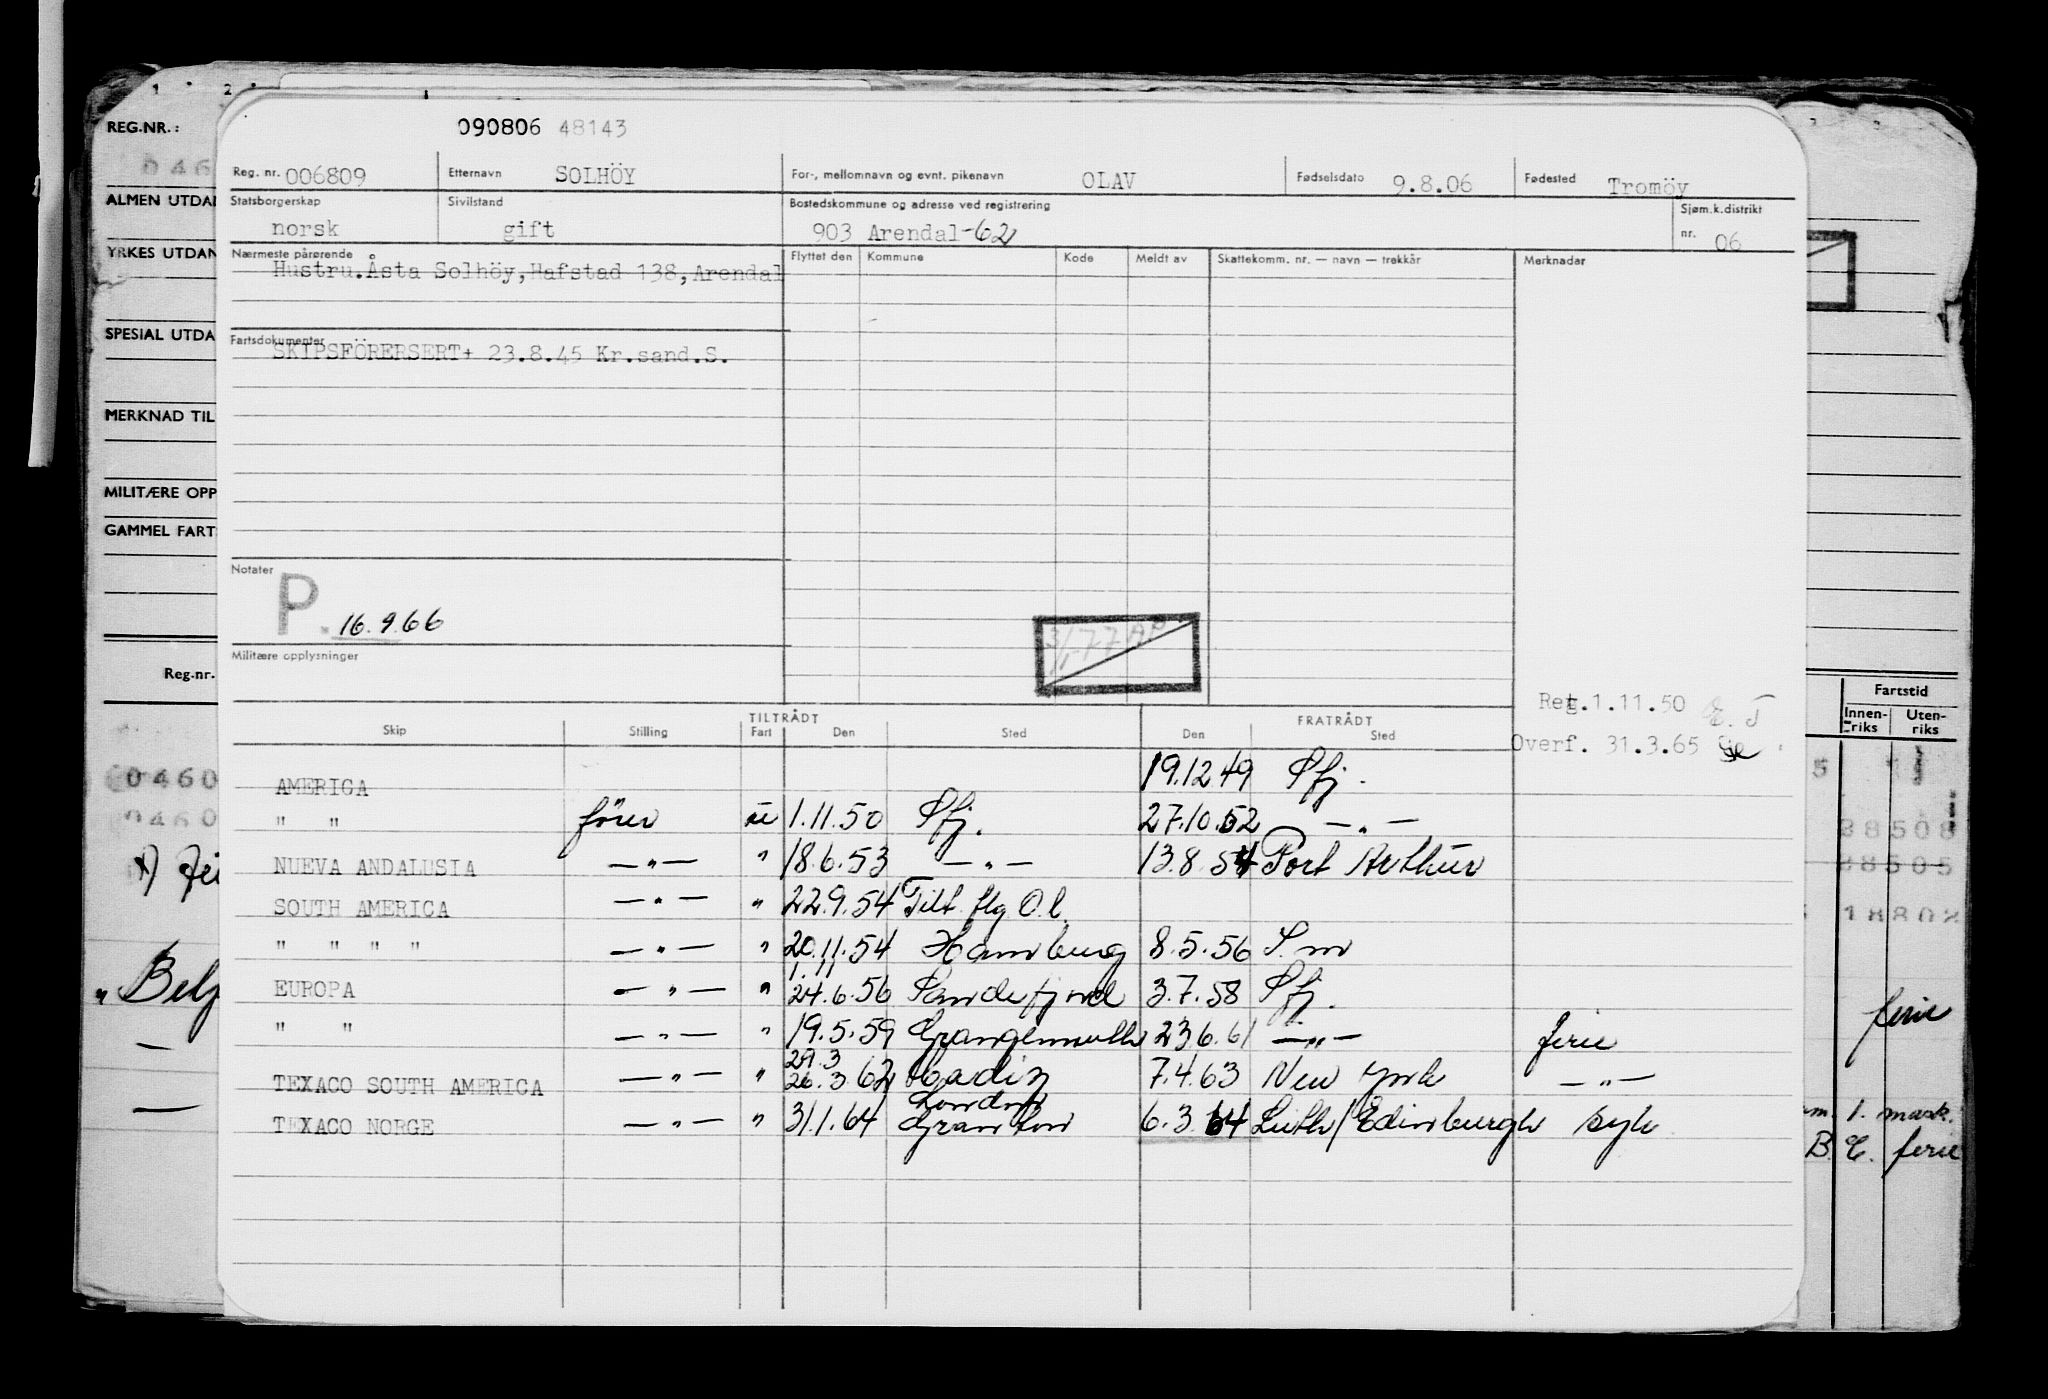 REG.NR.:
ALMEN UTDA
YRKES UTDAN
SPESIAL UTDA
MERKNAD TIL
MILITÆRE OPP
GAMMEL FART
Reg.-nr.
0460
0460
Belg
090806 48143
Reg. nr. 006809 Etternavn SOLHÖY For-, mellomnavn og evnt. pikenavn OLAV Fødselsdato 9.8.06 Fødested Tromöy
Statsborgerskap norsk Sivilstand gift Bostedskommune og adresse ved registrering 903 Arendal-62 Sjøm.k.distrikt nr. 06
Nærmeste pårørende Flyttet den Kommune Kode Meldt av Skattekomm. nr. — navn — trekkår Merknader
Hustru.Åsta Solhöy,Hafstad 138,Arendal
Fartsdokumenter
SKIPSFÖRERSERT+ 23.8.45 Kr.sand.S.
Notater
P. 16.9.66
3/1-77 AP
Militære opplysninger
Reg.1.11.50
Overf. 31.3.65
TILTRÅDT FRATRÅDT
Skip Stilling Fart Den Sted Den Sted
AMERICA 19.12.49 Sfj.
" " förer u 1.11.50 Sfj. 27.10.52 — " —
NUEVA ANDALUSIA — " — " 18.6.53 — " — 13.8.54 Port Arthur
SOUTH AMERICA — " — " 22.9.54 Tilt. flg. O.l.
" " " " — " — " 20.11.54 Hamburg 8.5.56 S.m
1.11
EUROPA — " — " 24.6.56 Sandefjord 3.7.58 Sfj.
" " — " — " 19.5.59 Grangemouth 23.6.61 — " — ferie
29.3
TEXACO SOUTH AMERICA — " — " 26.3.62 Cadiz 7.4.63 New York — " —
London
TEXACO NORGE — " — " 31.1.64 Granton 6.3.64 Leith/Edinburgh syk
Fartstid
Innen-riks Uten-riks
38508
38505
18802
ferie
1. mask.
B. C. ferie